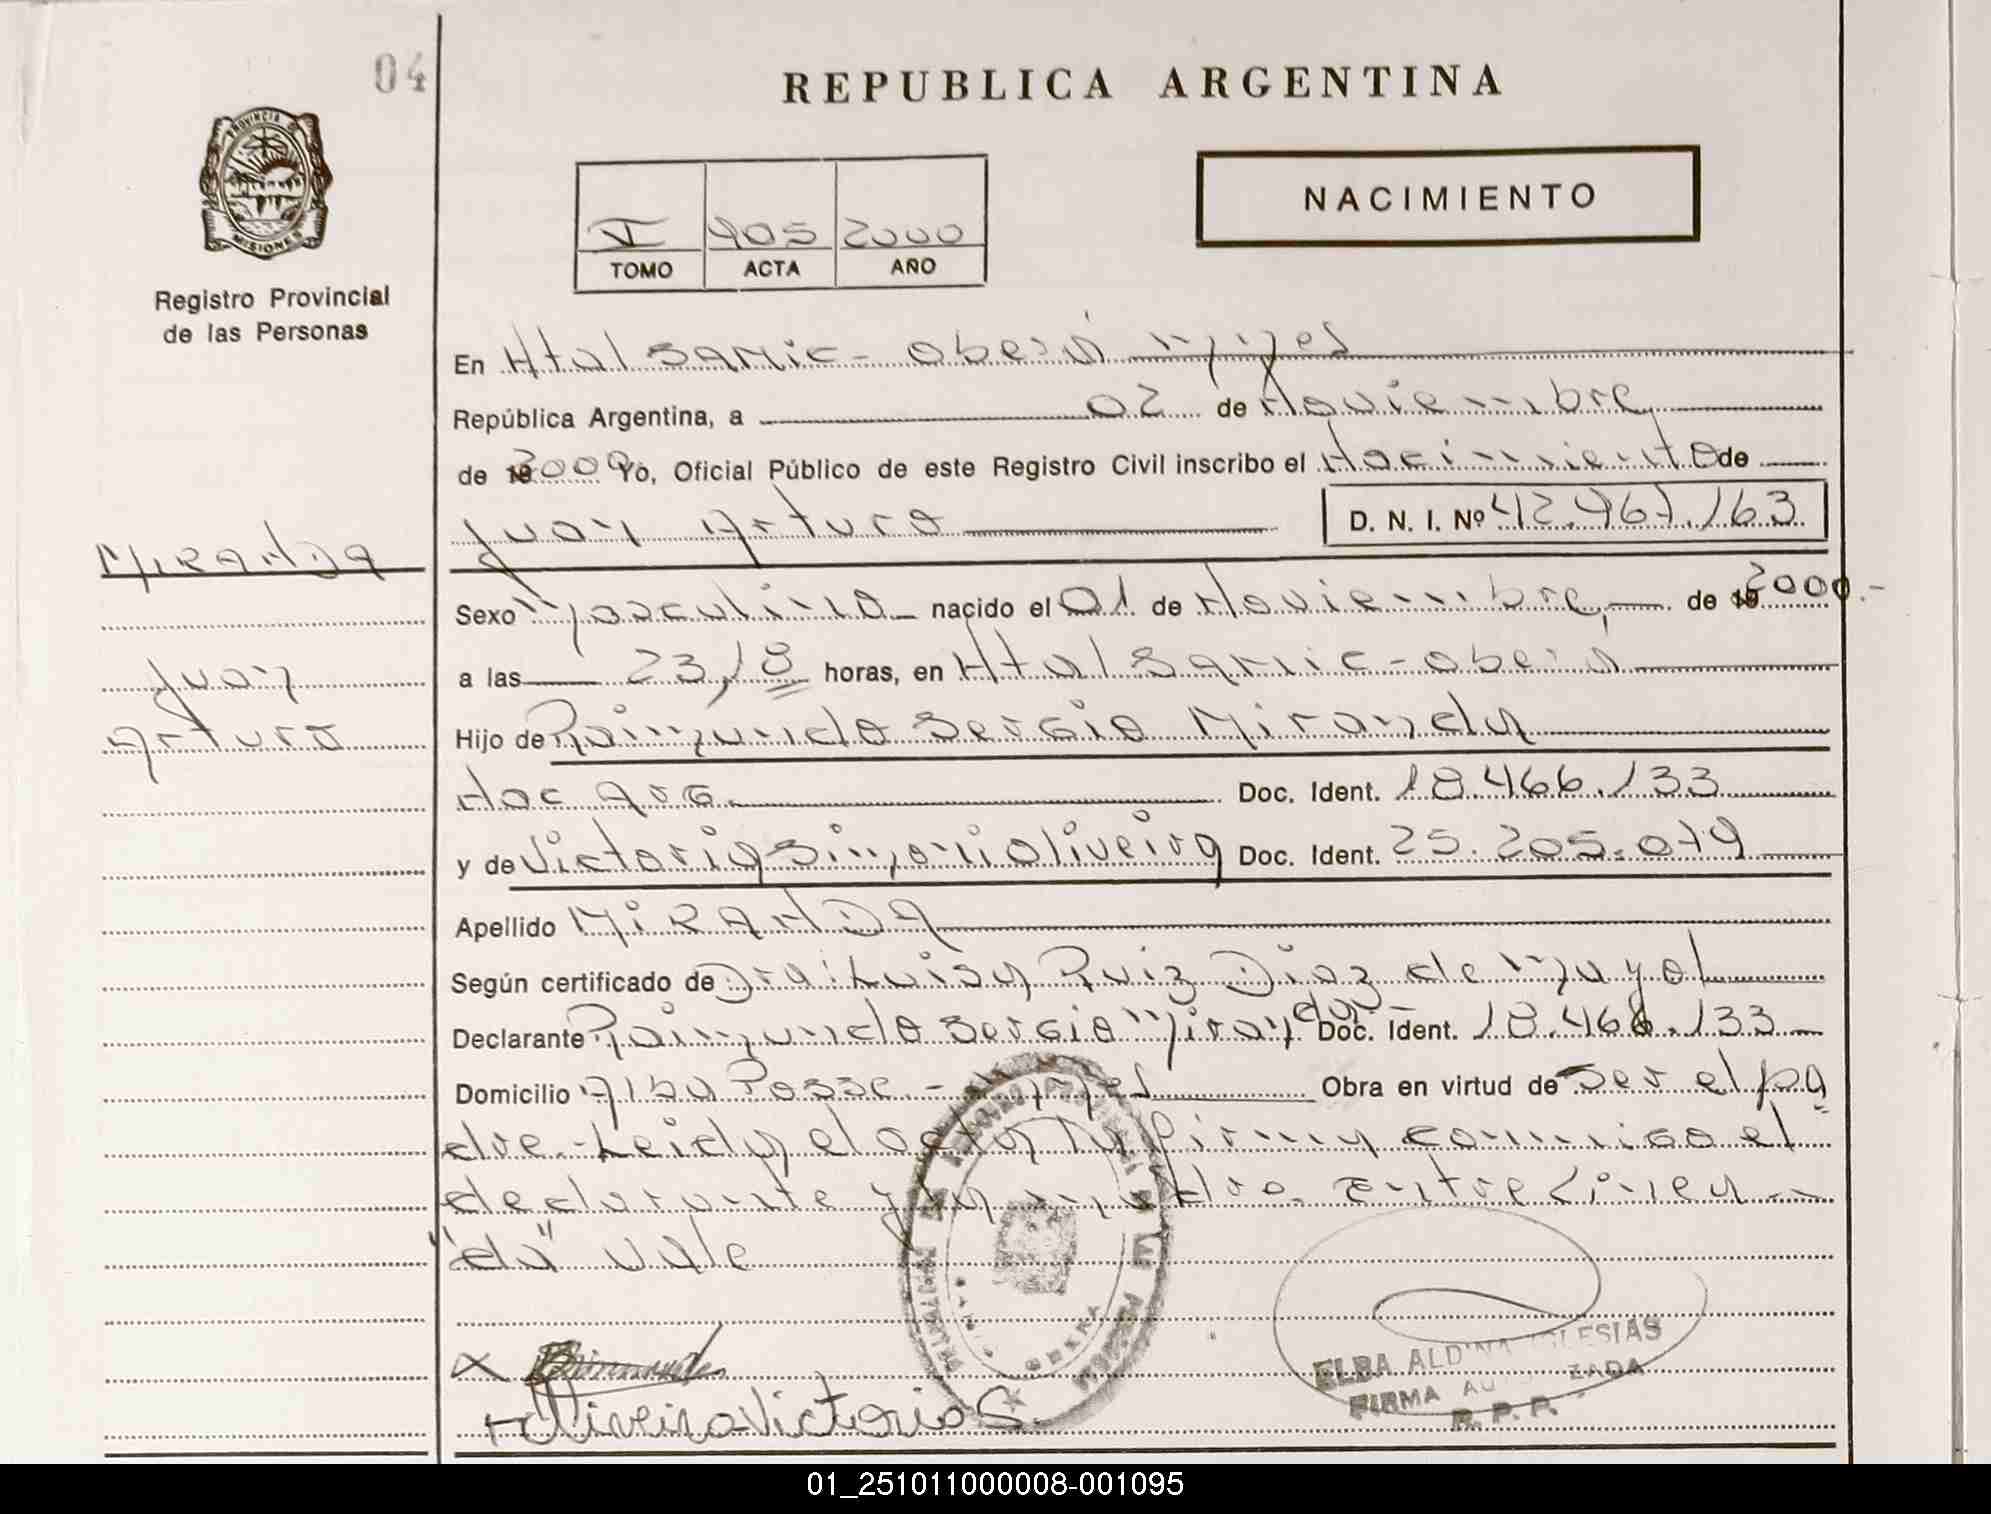 04
REPUBLICA ARGENTINA
PROVINCIA DE
MISIONES
Registro Provincial
de las Personas
VI 905 2000
TOMO ACTA AÑO
NACIMIENTO
En Htal Samic - Oberá Mnes
República Argentina, a 02 de Noviembre
de 2000 Yo, Oficial Público de este Registro Civil inscribo el Nacimiento de
Juan Arturo D. N. I. Nº 42.967.163
MIRANDA
Juan
Arturo
Sexo Masculino nacido el 01 de Noviembre de 2000.-
a las 23,18 horas, en Htal Samic - Oberá
Hijo de Raimundo Sergio Miranda
Nac Arg. Doc. Ident. 18.466.133
y de Victoria Simoni Oliveira Doc. Ident. 25.205.079
Apellido MIRANDA
Según certificado de Dra: Luisa Ruiz Diaz de Mayol
Declarante Raimundo Sergio Miranda- Doc. Ident. 18.466.133
Domicilio Alba Posse - Mnes Obra en virtud de ser el pa
dre.- Leida el acta la firma conmigo el
declarante y la madre. Entre Linea -
"da" vale
Oliveira Victoria S.
ELBA ALDINA IGLESIAS
FIRMA AUTORIZADA
R. P. P.
01_251011000008-001095